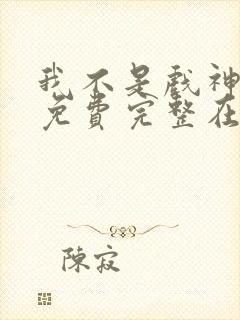 我不是戲神
免費完整在
陳寂